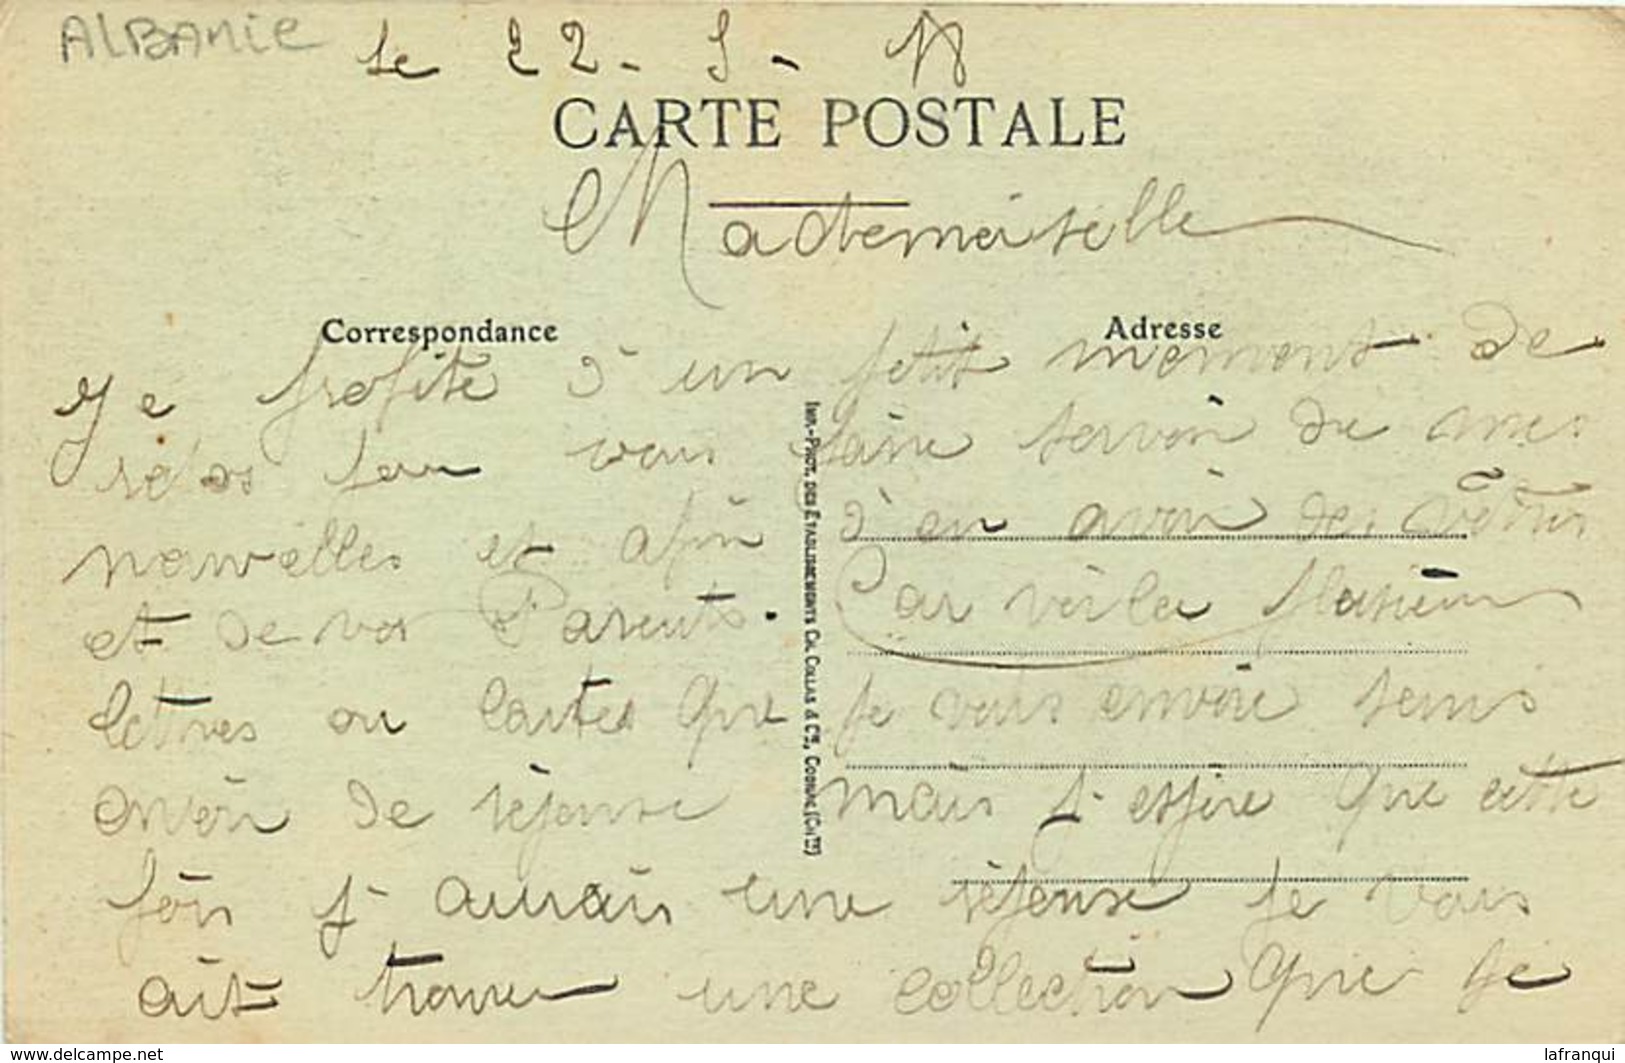 ALBANIE
le 22-5-18
CARTE POSTALE
Mademoiselle
Correspondance
Adresse
Je profite d'un petit moment de
repos pour vous faire servoir de mes
nouvelles et afin d'en avoir des vôtres
et de vos Parents. Car voila plusieurs
lettres ou Cartes que je vous envoie sens
avoir de réponse mais j'espire que cette
fois j'aurais une réponse je vous
ait trouver une collection que je
IMP.-PHOT. DES ÉTABLISSEMENTS CH. COLLAS & Cie, COGNAC (Chte)
www.delcampe.net
lafranqui